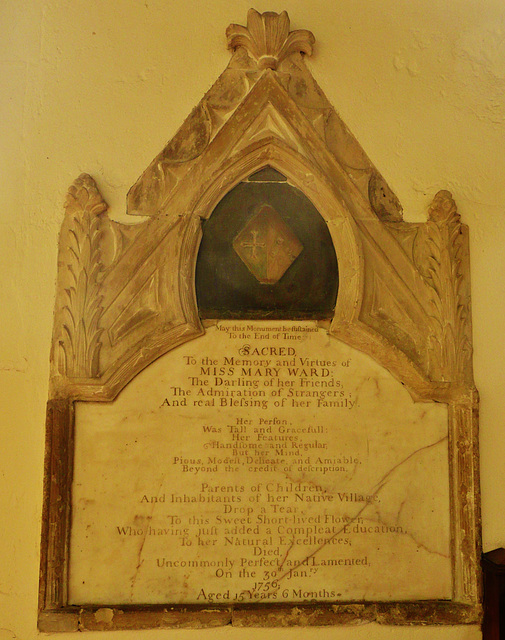 May this Monument be sustained
To the End of Time
SACRED,
To the Memory and Virtues of
MISS MARY WARD:
The Darling of her Friends,
The Admiration of Strangers;
And real Bleſsing of her Family.
Her Perſon,
Was Tall and Gracefull:
Her Features,
Handſome and Regular,
But her Mind,
Pious, Modeſt, Delicate, and Amiable,
Beyond the credit of deſcription.
Parents of Children,
And Inhabitants of her Native Village,
Drop a Tear,
To this Sweet Short-lived Flower,
Who having juſt added a Compleat Education,
To her Natural Excellences,
Died,
Uncommonly Perfect and Lamented,
On the 30th Jan.ry
1756,
Aged 15 Years 6 Months